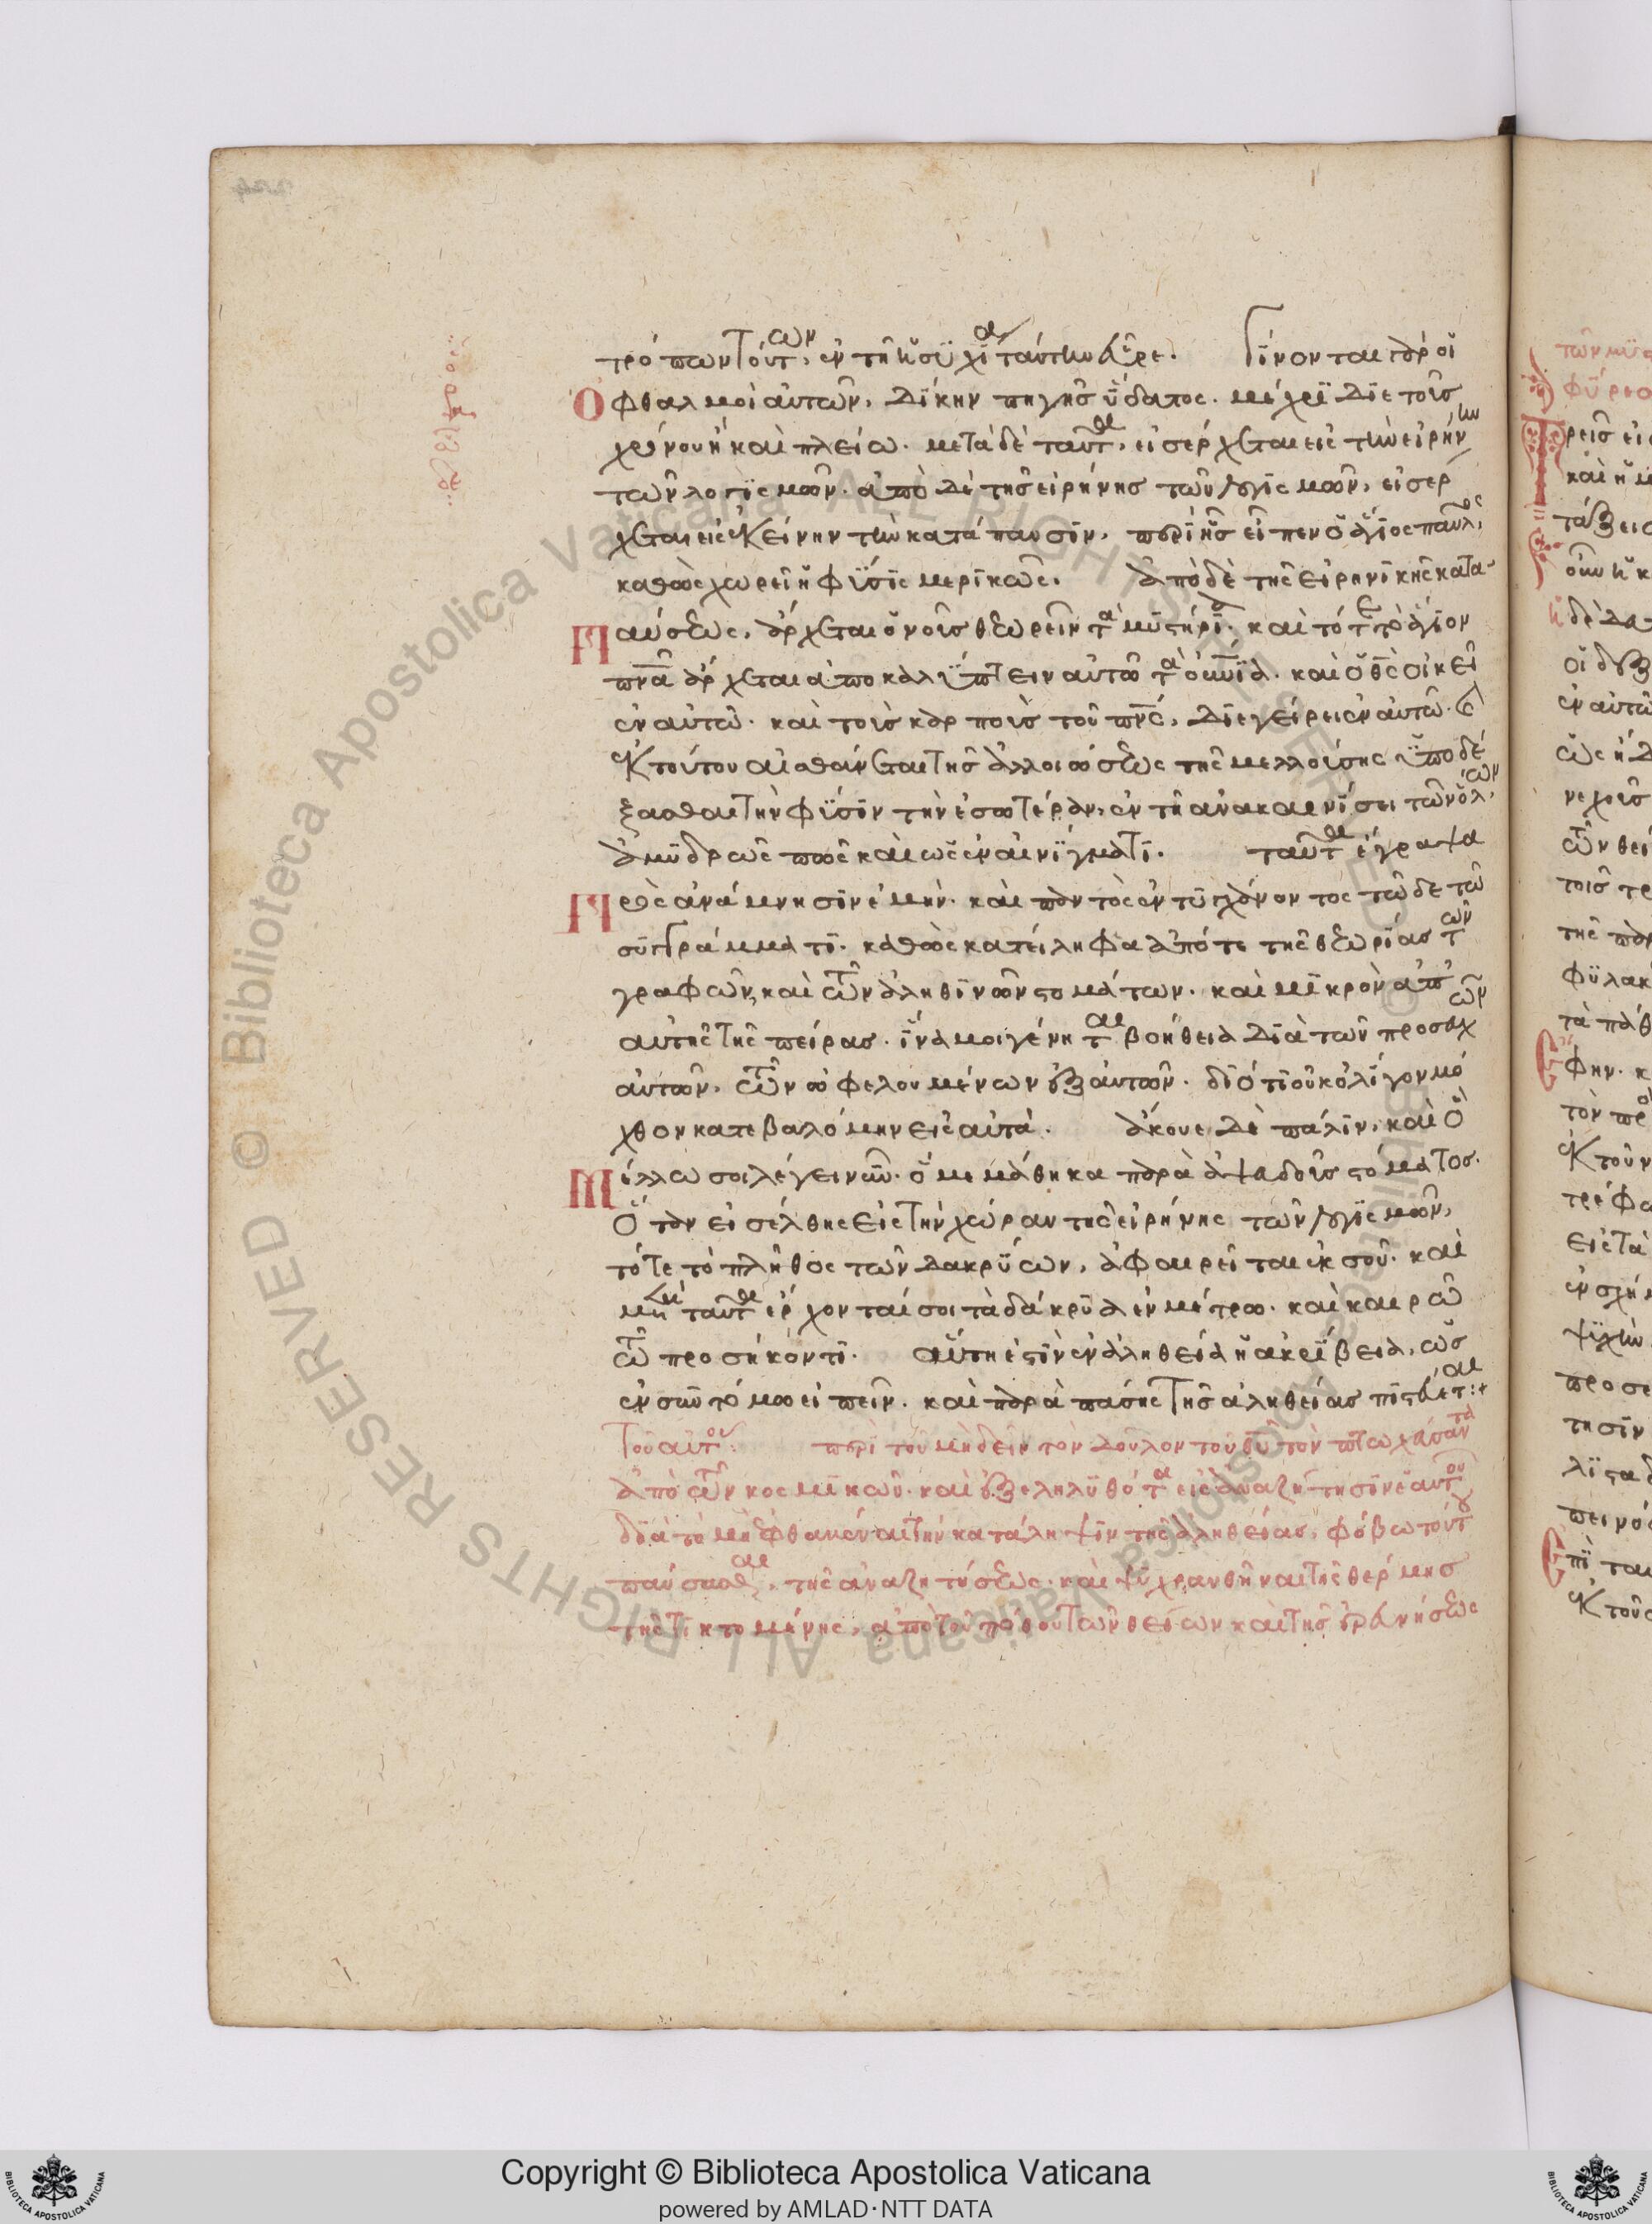 τρόπων τούτων, ἐν τῇ ἡσυχίᾳ ταύτην εὗρε. Γίνονται γὰρ οἱ
ὀφθαλμοὶ αὐτῶν, δίκην πηγῆς ὕδατος. μέχρι διετοῦς
χρόνου ἢ καὶ πλείω. μετὰ δὲ ταῦτα, εἰσέρχεται εἰς τὴν εἰρήνην
τῶν λογισμῶν. ἀπὸ δὲ τῆς εἰρήνης τῶν λογισμῶν, εἰσέρ
χεται εἰς ἐκείνην τὴν κατάπαυσιν, περὶ ἧς εἶπεν ὁ ἅγιος παῦλος,
καθὼς χωρεῖ ἡ φύσις μερικῶς. Ἀπὸ δὲ τῆς εἰρηνικῆς κατα
παύσεως, ἄρχεται ὁ νοῦς θεωρεῖν τὰ μυστήρια. καὶ τότε τὸ ἅγιον
πνα ἄρχεται ἀποκαλύπτειν αὐτῷ τὰ οὐνια. καὶ ὁ θς οἰκεῖ
ἐν αὐτῷ. καὶ τοὺς καρποὺς τοῦ πνς, διεγείρει ἐν αὐτῷ. Ἐ
κ τούτου αἰσθάνεται τῆς ἀλλοιώσεως τῆς μελλούσης ὑποδέ
ξασθαι τὴν φύσιν τὴν ἐσωτέραν, ἐν τῇ ἀνακαινίσει τῶν ὅλων,
ἀμυδρῶς πως καὶ ὡς ἐν αἰνίγματι. ταῦτα ἔγραψα
πρὸς ἀνάμνησιν ἐμήν. καὶ παντὸς ἐντυγχάνοντος τῷδε τῷ
συγγράμματι. καθὼς κατείληφα ἀπό τε τῆς θεωρίας τῶν
γραφῶν, καὶ τῶν ἀληθινῶν στομάτων. καὶ μικρὸν ἀπ'
αὐτῆς τῆς πείρας. ἵνα μοι γένηται βοήθεια διὰ τῶν προσευχῶν
αὐτῶν, τῶν ὠφελουμένων ἐξ αὐτῶν. διότι οὐκ ὀλίγον μό
χθον κατεβαλόμην εἰς αὐτά. Ἄκουε δὲ πάλιν, καὶ ὃ
μέλλω σοι λέγειν νῦν. ὃ μεμάθηκα παρὰ ἀψευδοῦς στόματος.
Ὅταν εἰσέλθῃς εἰς τὴν χώραν τῆς εἰρήνης τῶν λογισμῶν,
τότε τὸ πλῆθος τῶν δακρύων, ἀφαιρεῖται ἐκ σοῦ. καὶ
μετὰ ταῦτα ἔρχονταί σοι τὰ δάκρυα ἐν μέτρῳ. καὶ καιρῷ
τῷ προσήκοντι. αὕτη ἐστὶν ἐν ἀληθείᾳ ἡ ἀκρίβεια, ὡς
ἐν συντόμῳ εἰπεῖν. καὶ παρὰ πάσης τῆς ἀληθείας πιστεύεται:+
Τοῦ αὐτοῦ: περὶ τοῦ μὴ δεῖν τὸν δοῦλον τοῦ θυ τὸν πτωχεύσαντα
ἀπὸ τῶν κοσμικῶν. καὶ ἐξεληλυθότα εἰς ἀναζήτησιν ἑαυτοῦ
διὰ τὸ μὴ ἐφθακέναι τὴν κατάληψιν τῆς ἀληθείας, φόβῳ τούτου
παύσασθαι, τῆς ἀναζητήσεως. καὶ ψυχρανθῆναι τῆς θέρμης
τῆς τικτομένης, ἀπὸ τοῦ πόθου τῶν θείων καὶ τῆς ἐρευνήσεως